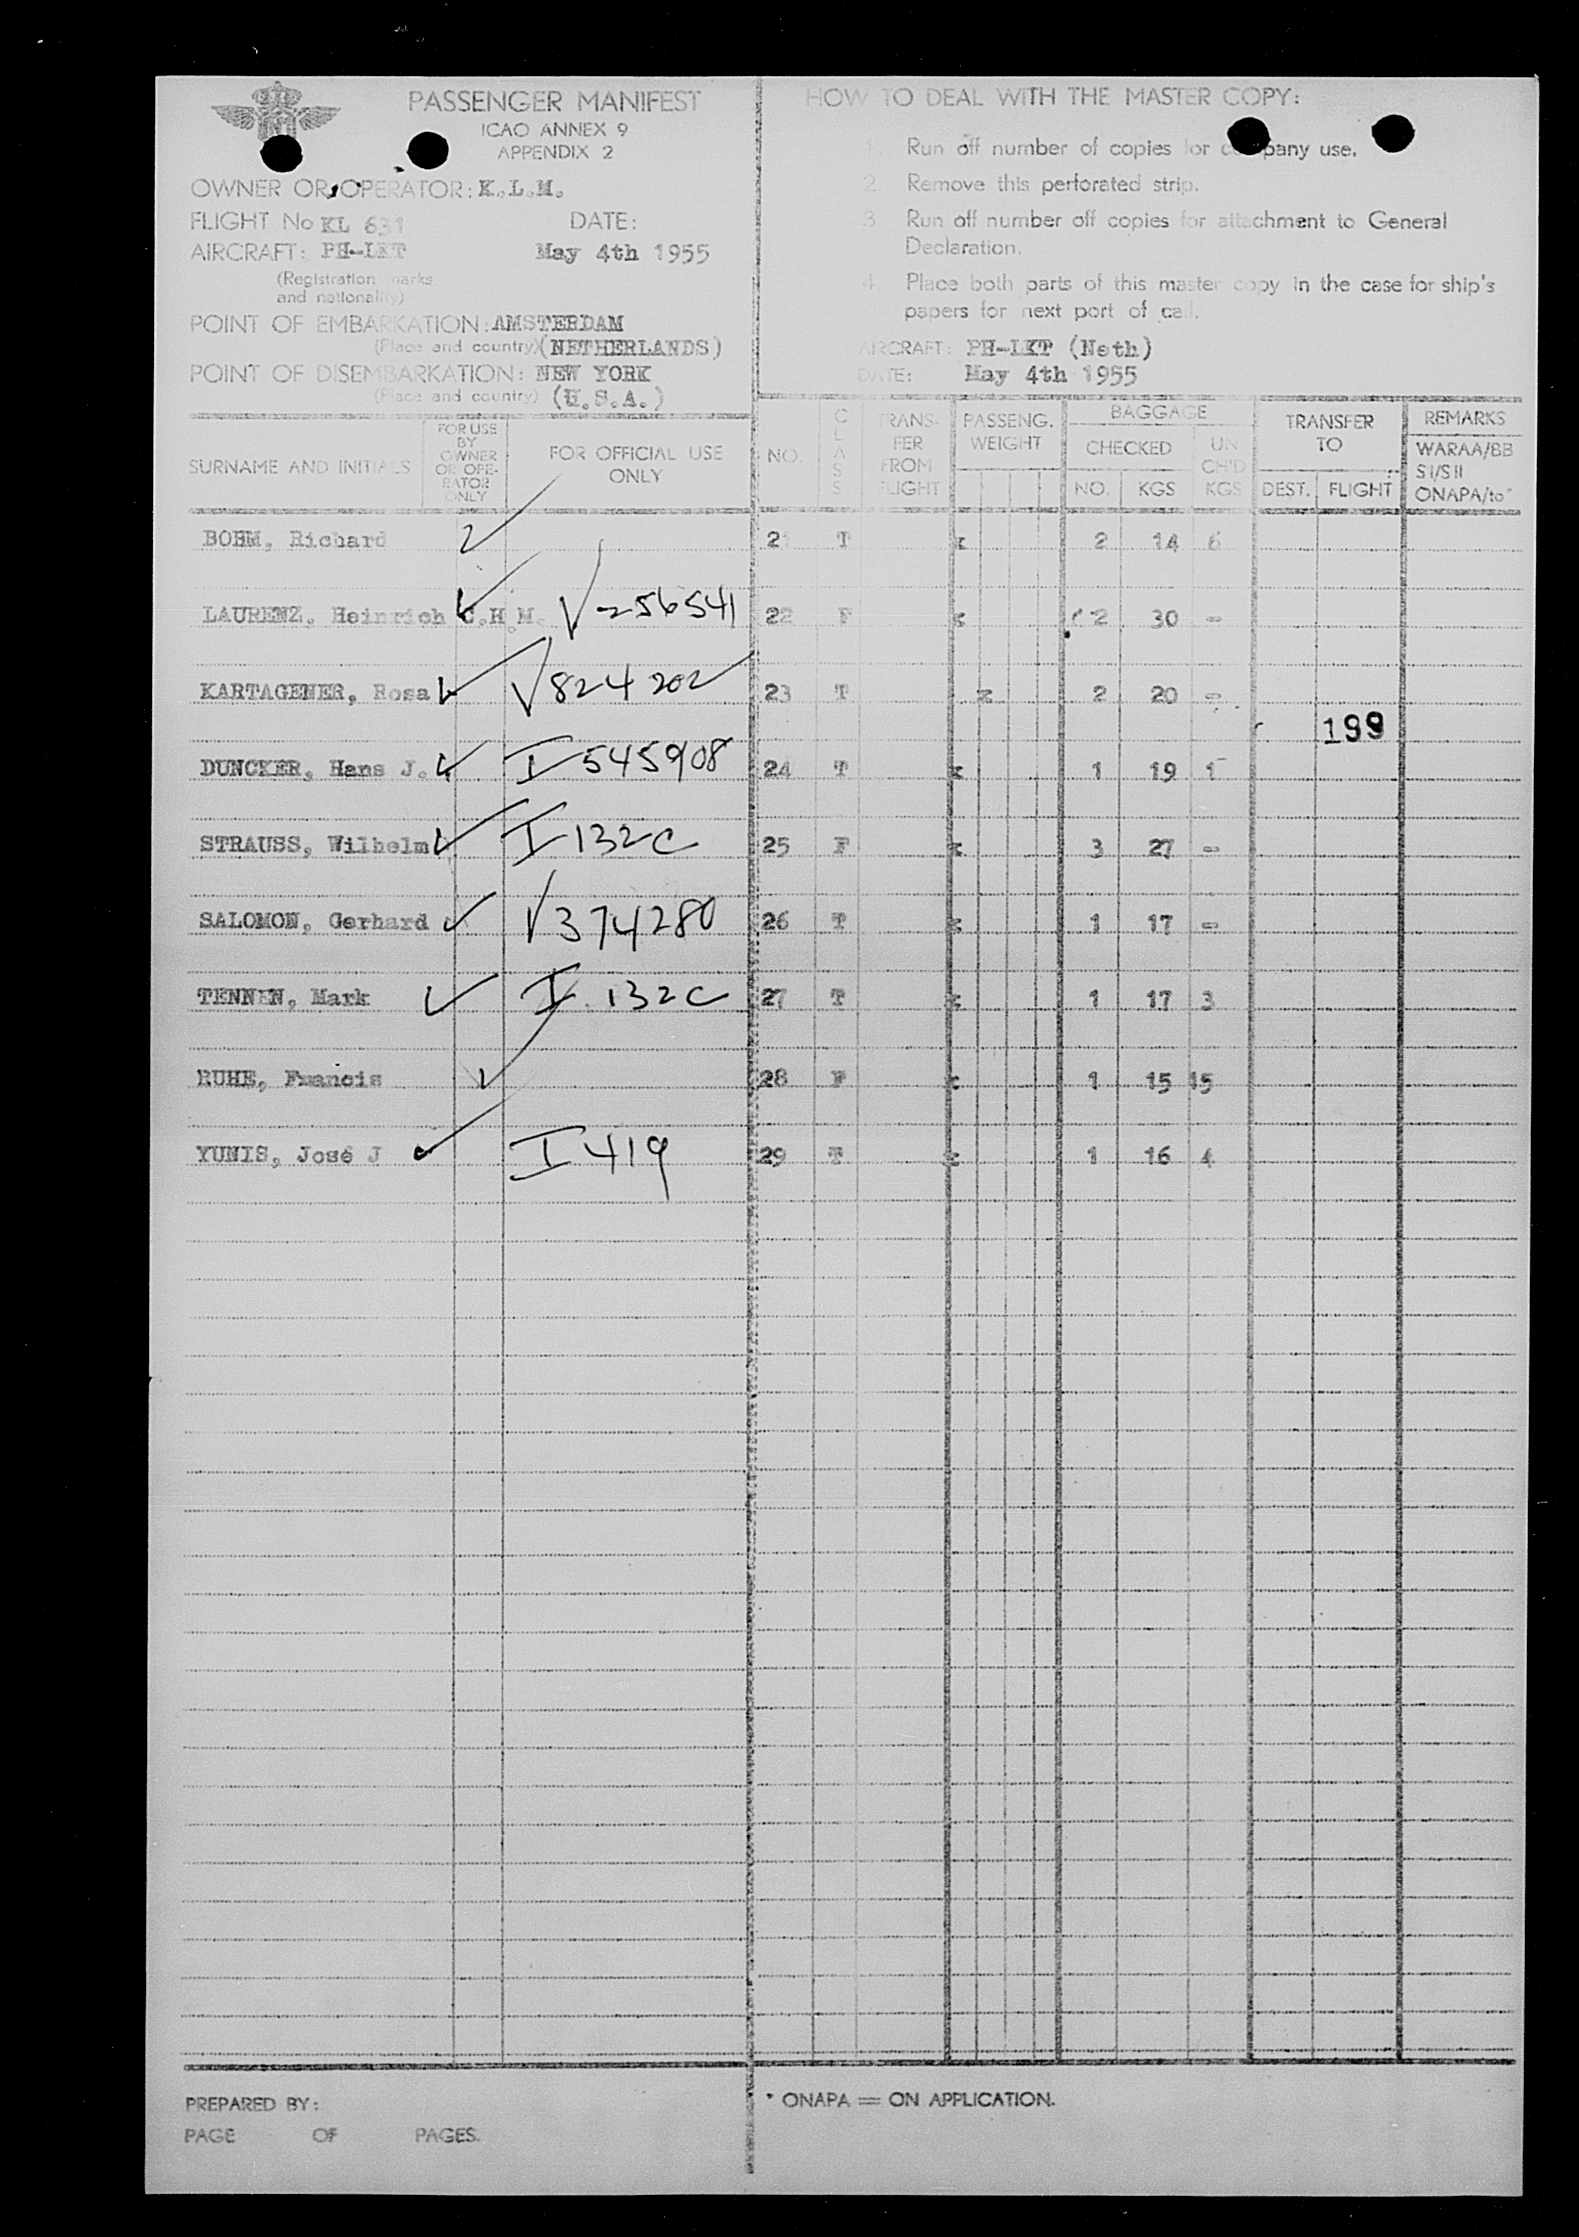 PASSENGER MANIFEST
ICAO ANNEX 9
APPENDIX 2
OWNER OR OPERATOR: K.L.M.
FLIGHT No KL 631 DATE:
AIRCRAFT: PH-LKT May 4th 1955
(Registration marks
and nationality)
POINT OF EMBARKATION: AMSTERDAM
(Place and country) (NETHERLANDS)
POINT OF DISEMBARKATION: NEW YORK
(Place and country) (U.S.A.)
HOW TO DEAL WITH THE MASTER COPY:
1. Run off number of copies for company use.
2. Remove this perforated strip.
3. Run off number off copies for attachment to General
Declaration.
4. Place both parts of this master copy in the case for ship's
papers for next port of call.
AIRCRAFT: PH-LKT (Neth)
DATE: May 4th 1955
SURNAME AND INITIALS FOR USE BY OWNER OR OPE- RATOR ONLY FOR OFFICIAL USE ONLY NO CLASS TRANS- FER FROM FLIGHT PASSENG. WEIGHT BAGGAGE CHECKED NO. KGS UN CH'D KGS TRANSFER TO DEST. FLIGHT REMARKS WARAA/BB SI/SII ONAPA/to*
BOHM, Richard 21 T x 2 14 6
LAURENZ, Heinrich C.H.M. V-256541 22 F x 2 30 -
KARTAGENER, Rosa V824202 23 T x 2 20 -
199
DUNCKER, Hans J. I-545908 24 T x 1 19 1
STRAUSS, Wilhelm I-132C 25 F x 3 27 -
SALOMON, Gerhard V374280 26 T x 1 17 -
TENNEN, Mark I 132C 27 T x 1 17 3
RUHE, Francis 28 F x 1 15 15
YUNIS, José J I 419 29 T x 1 16 4
PREPARED BY:
PAGE OF PAGES.
* ONAPA = ON APPLICATION.